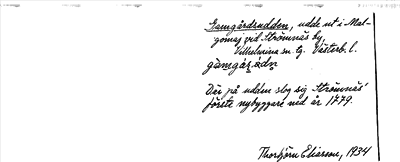 Gamgårdsudden, udde ut i Mal-
gomaj vid Strömnäs by,
Vilhelmina sn. Lg. Västerb. l.
gàmgáz̩ùdn̩
Där på udden slog sig Strömnäs'
förste nybyggare ned år 1779.
Thorbjörn Eliasson, 1934